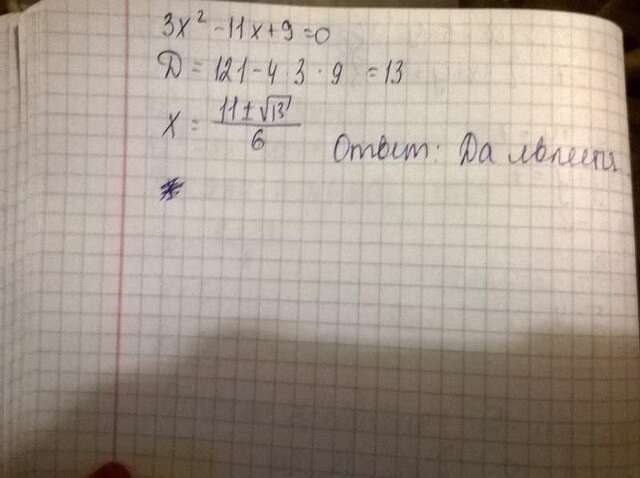 3x² - 11x + 9 = 0
D = 121 - 4 3 · 9 = 13
x = (11 ± √13) / 6
Ответ: Да является